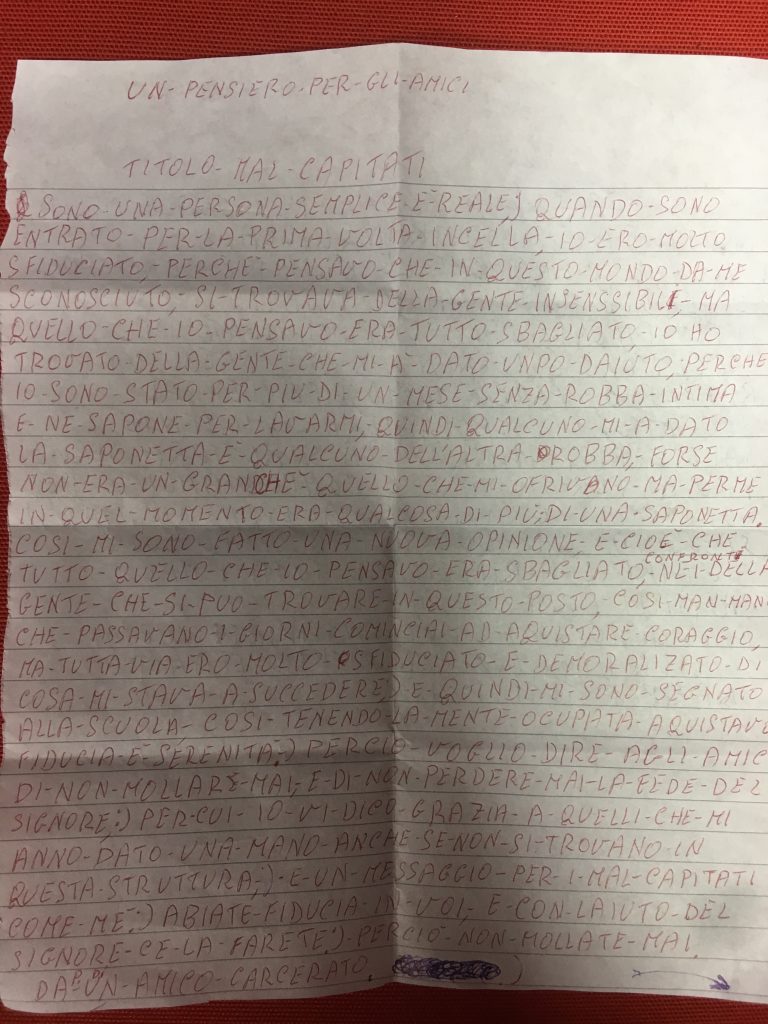 UN-PENSIERO-PER-GLI-AMICI
TITOLO-MAL-CAPITATI
SONO-UNA-PERSONA-SEMPLICE-E-REALE,) QUANDO-SONO
ENTRATO-PER-LA-PRIMA-VOLTA-INCELLA, IO-ERO-MOLTO
SFIDUCIATO,-PERCHE-PENSAVO-CHE-IN-QUESTO-MONDO-DA-ME
SCONOSCIUTO,-SI-TROVAVA-DELLA-GENTE-INSENSSIBILE-MA
QUELLO-CHE-IO-PENSAVO-ERA-TUTTO-SBAGLIATO, IO HO
TROVATO-DELLA-GENTE-CHE-MI-A-DATO-UNPO-DAIUTO, PERCHE
IO-SONO-STATO-PER-PIU-DI-UN-MESE-SENZA-ROBBA-INTIMA
E-NE-SAPONE-PER-LAVARMI, QUINDI-QUALCUNO-MI-A-DATO
LA-SAPONETTA-E-QUALCUNO-DELL'ALTRA-ROBBA,-FORSE
NON-ERA-UN-GRANCHE-QUELLO-CHE-MI-OFRIVANO-MA-PERME
IN-QUEL-MOMENTO-ERA-QUALCOSA-DI-PIU,-DI-UNA-SAPONETTA.
COSI-MI-SONO-FATTO-UNA-NUOVA-OPINIONE, E-CIOE-CHE
TUTTO-QUELLO-CHE-IO-PENSAVO-ERA-SBAGLIATO,-NEI-CONFRONTI-DELLA
GENTE-CHE-SI-PUO-TROVARE-IN-QUESTO-POSTO, COSI-MAN-MAN
CHE-PASSAVANO-I-GIORNI-COMINCIAI-AD-AQUISTARE-CORAGGIO,
MA-TUTTAVIA-ERO-MOLTO-SFIDUCIATO-E-DEMORALIZATO-DI
COSA-MI-STAVA-A-SUCCEDERE) E-QUINDI-MI-SONO-SEGNATO
ALLA-SCUOLA-COSI-TENENDO-LA-MENTE-OCUPATA-AQUISTAVO
FIDUCIA-E-SERENITA.) PERCIO-VOGLIO-DIRE-AGLI-AMICI
DI-NON-MOLLARE-MAI,-E-DI-NON-PERDERE-MAI-LA-FEDE-DEL
SIGNORE,) PER-CUI-IO-VI-DICO-GRAZIA-A-QUELLI-CHE-MI
ANNO-DATO-UNA-MANO-ANCHE-SE-NON-SI-TROVANO-IN
QUESTA-STRUTTURA;) E-UN-MESSAGGIO-PER-I-MAL-CAPITATI
COME-ME.) ABIATE-FIDUCIA-IN-VOI, E-CON-LAIUTO-DEL
SIGNORE-CE-LA-FARETE.) PERCIO-NON-MOLLATE-MAI.
DA-UN-AMICO-CARCERATO.